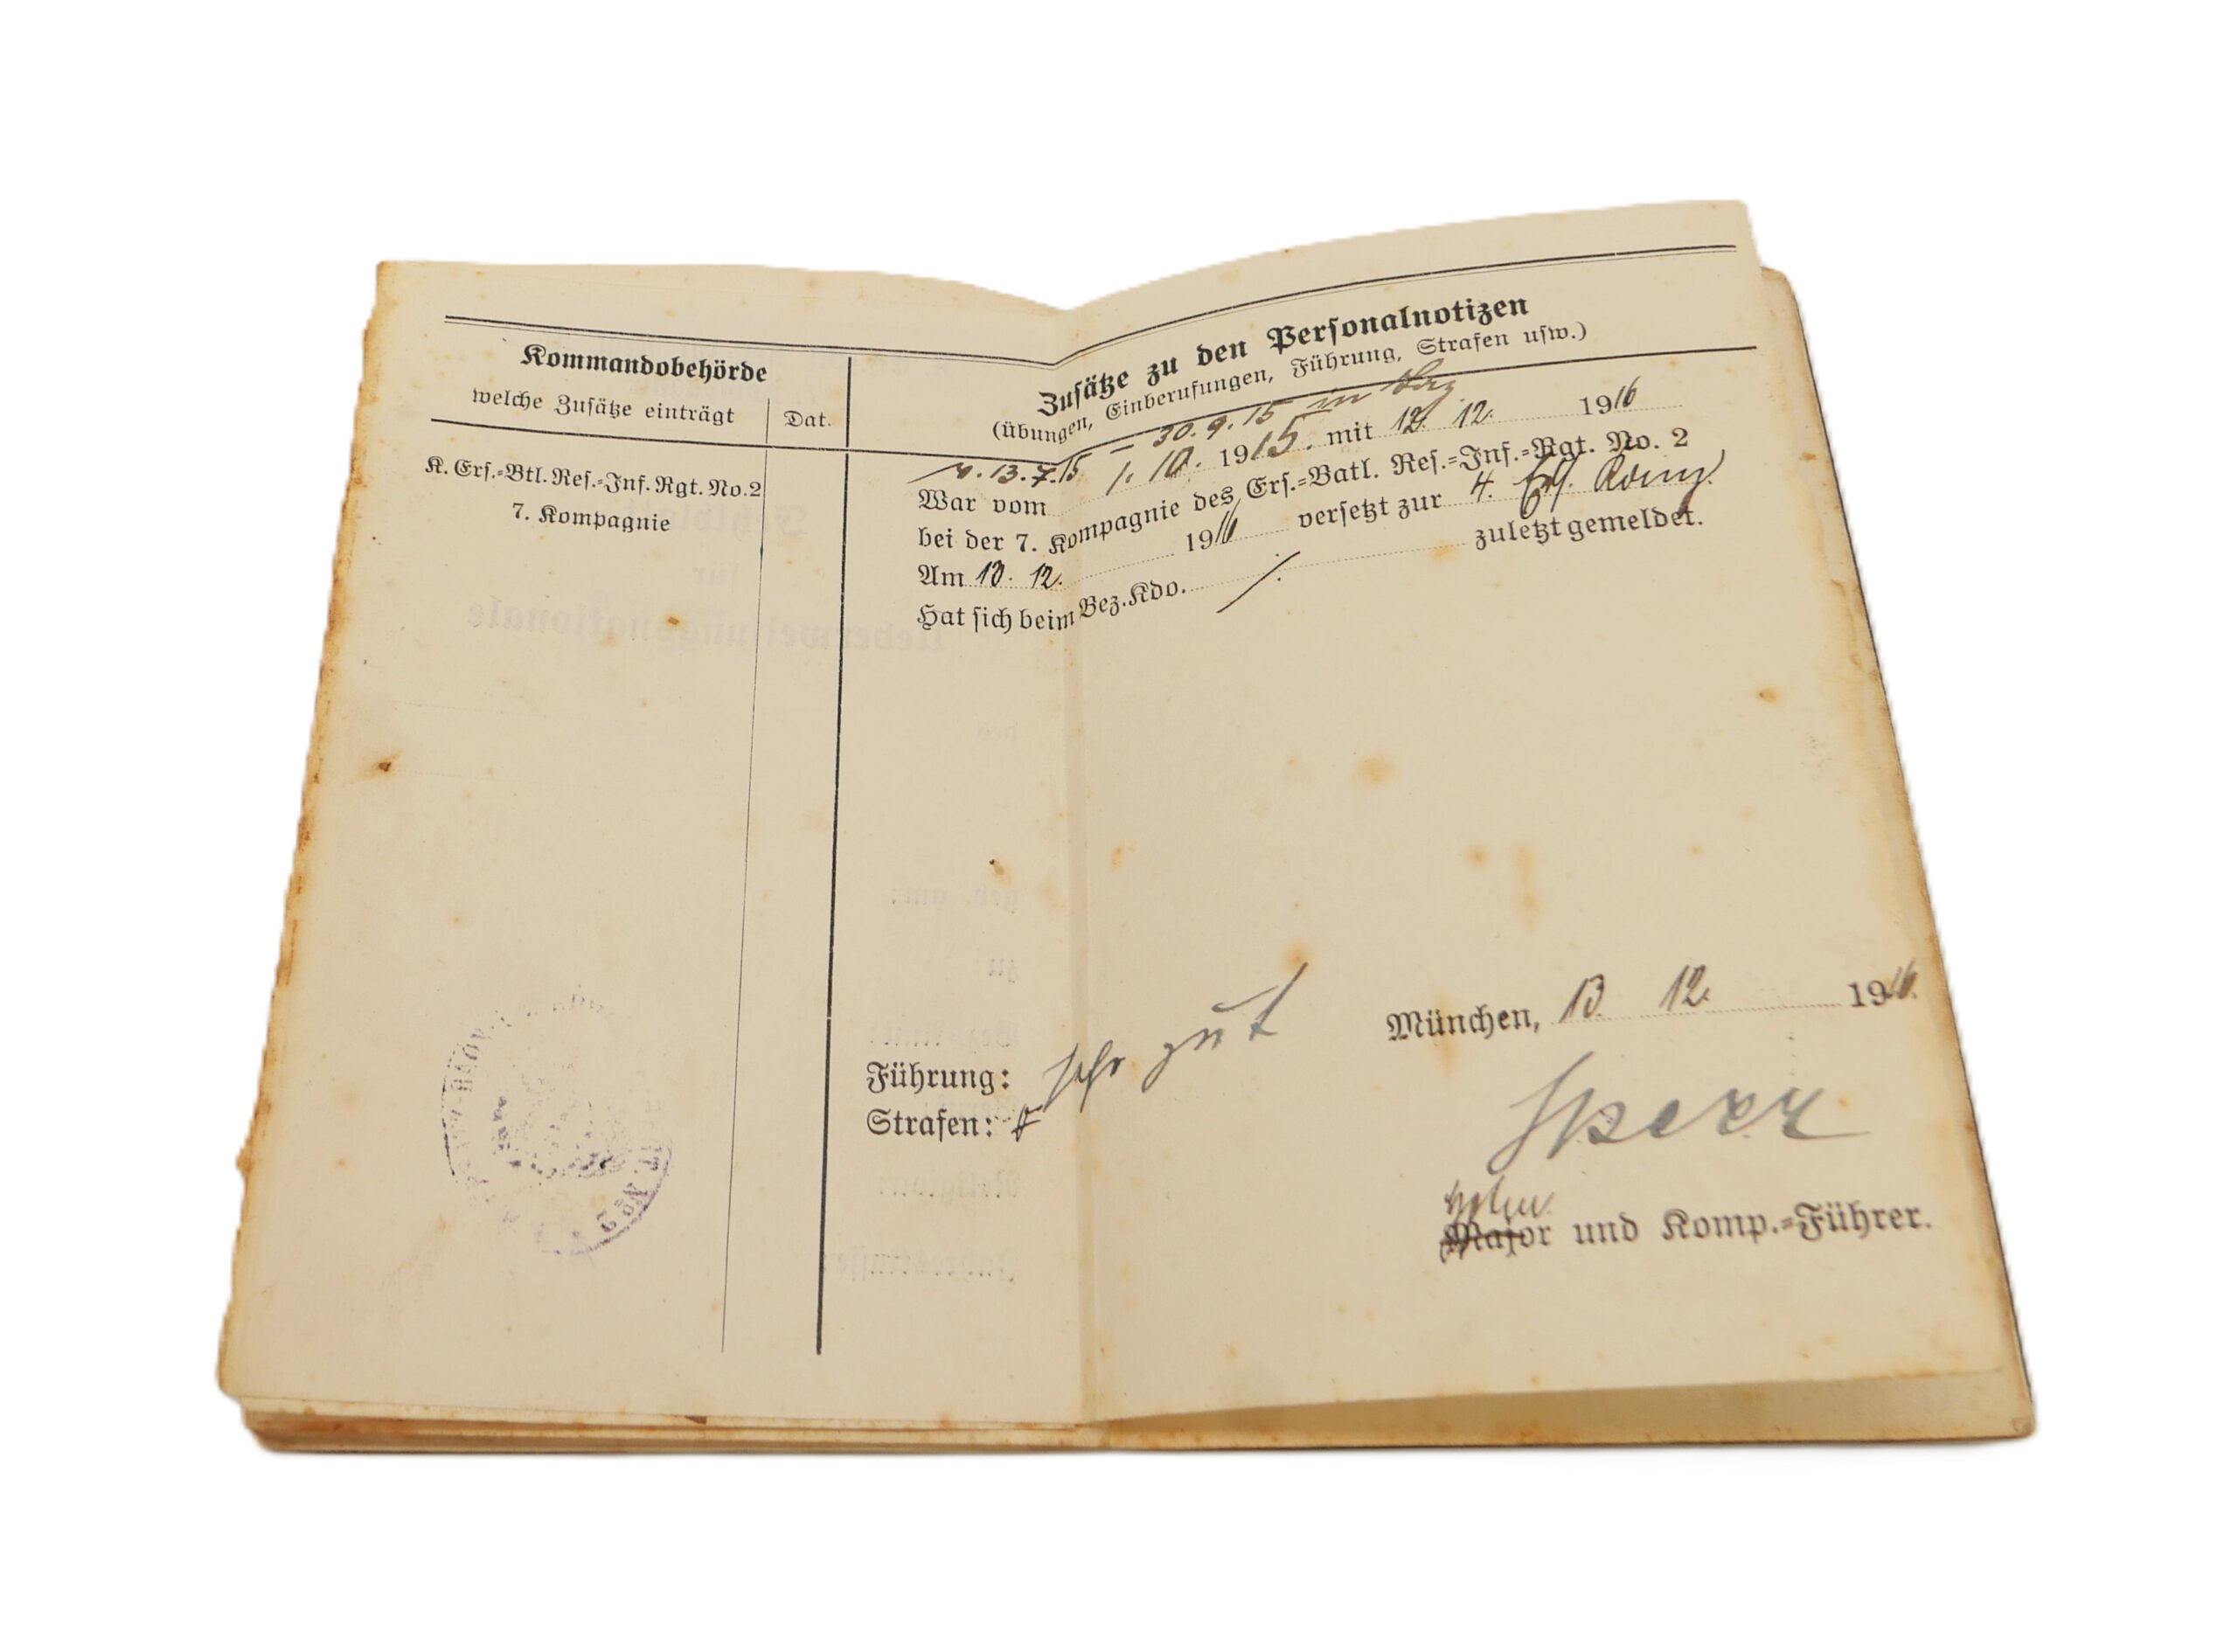 Kommandobehörde
welche Zusätze einträgt
Dat.
K. Ers.=Btl. Res.=Inf. Rgt. No. 2
7. Kompagnie
Zusätze zu den Personalnotizen
(Übungen, Einberufungen, Führung, Strafen usw.)
v. 13.7.15 – 30.9.15 in Laz
War vom 1. 10. 1915. mit 12. 12. 1916
bei der 7. Kompagnie des Ers.=Batl. Res.=Inf.=Rgt. No. 2
Am 13. 12. 1916 versetzt zur 4. Ers. Komp.
Hat sich beim Bez. Kdo. /. zuletzt gemeldet.
München, 13 12. 1916.
Führung: sehr gut
Strafen:
Major und Komp.=Führer.
No 2